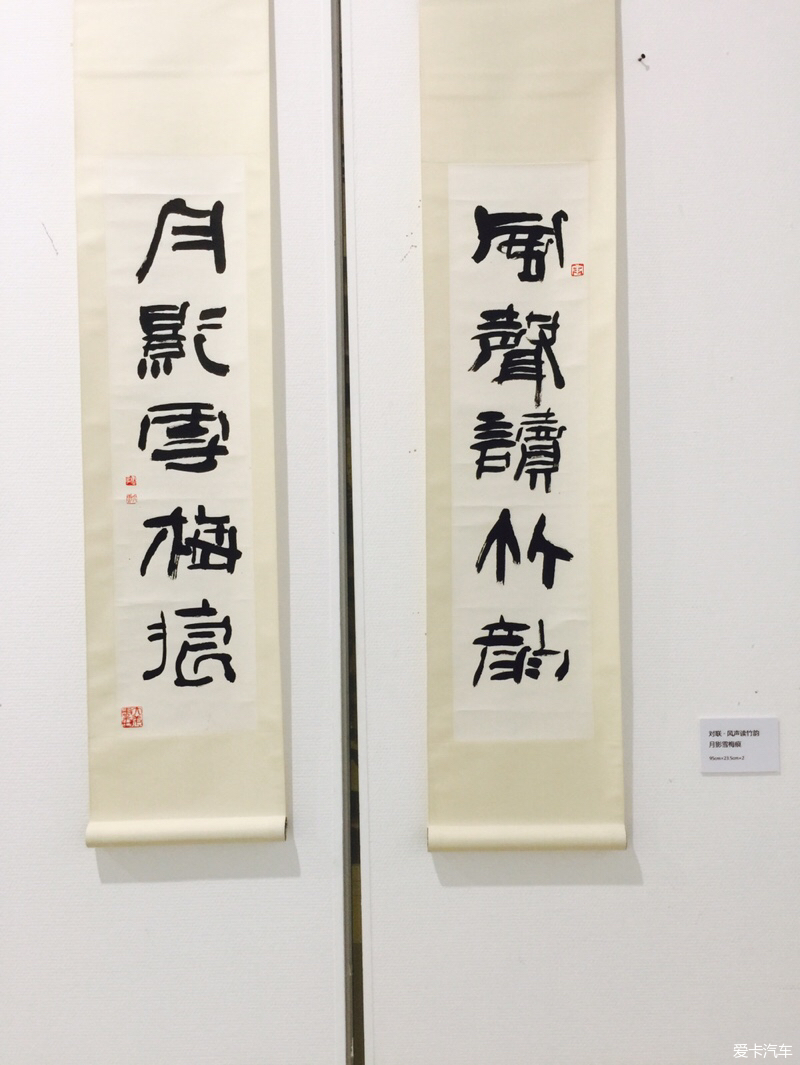 風聲讀竹韵
月影雪梅痕
对联·风声读竹韵
月影雪梅痕
95cm×23.5cm×2
爱卡汽车